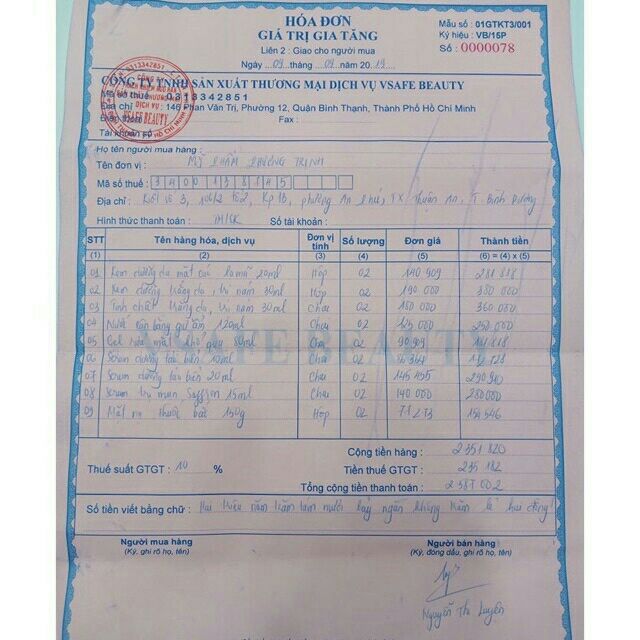 HÓA ĐƠN
GIÁ TRỊ GIA TĂNG
Liên 2 : Giao cho người mua
Ngày 09 tháng 09 năm 2019
Mẫu số : 01GTKT3/001
Ký hiệu : VB/15P
Số : 0000078
CÔNG TY TNHH SẢN XUẤT THƯƠNG MẠI DỊCH VỤ VSAFE BEAUTY
Mã số thuế : 0313342851
Địa chỉ : 146 Phan Văn Trị, Phường 12, Quận Bình Thạnh, Thành Phố Hồ Chí Minh
Điện thoại : Fax :
Tài khoản số :
Họ tên người mua hàng :
Tên đơn vị : MỸ PHẨM PHƯƠNG TRINH
Mã số thuế :
Địa chỉ : 3, tổ 2, Kp 1B, phường An Phú, TX Thuận An, T Bình Dương
Hình thức thanh toán : TM/CK Số tài khoản :
STT Tên hàng hóa, dịch vụ Đơn vị tính Số lượng Đơn giá Thành tiền
(1) (2) (3) (4) (5) (6) = (4) x (5)
01 Kem dưỡng da mặt 20ml Hộp 02 140 909 281 818
02 Kem dưỡng trắng da, trị nám 30ml Hộp 02 190 000 380 000
03 Tinh chất trắng da, trị nám 30ml Chai 02 180 000 360 000
04 Nước cân bằng giữ ẩm 120ml Chai 02 125 000 250 000
05 Gel rửa mặt 80ml 02 90 909
06 Serum dưỡng tảo biển 10ml Chai 02
07 Serum dưỡng tảo biển 20ml Chai 02 145 455 290 910
08 Serum trị mụn Saffron 15ml Chai 02 140 000 280 000
09 Mặt nạ thuốc bắc 150g Hộp 02 77 273 154 546
VSAFE BEAUTY
Cộng tiền hàng : 2 351 820
Thuế suất GTGT : 10 % Tiền thuế GTGT : 235 182
Tổng cộng tiền thanh toán : 2 587 002
Số tiền viết bằng chữ : Hai triệu năm trăm tám mươi bảy ngàn không trăm lẻ hai đồng
Người mua hàng Người bán hàng
(Ký, ghi rõ họ, tên) (Ký, đóng dấu, ghi rõ họ, tên)
Nguyễn Thị Luyên